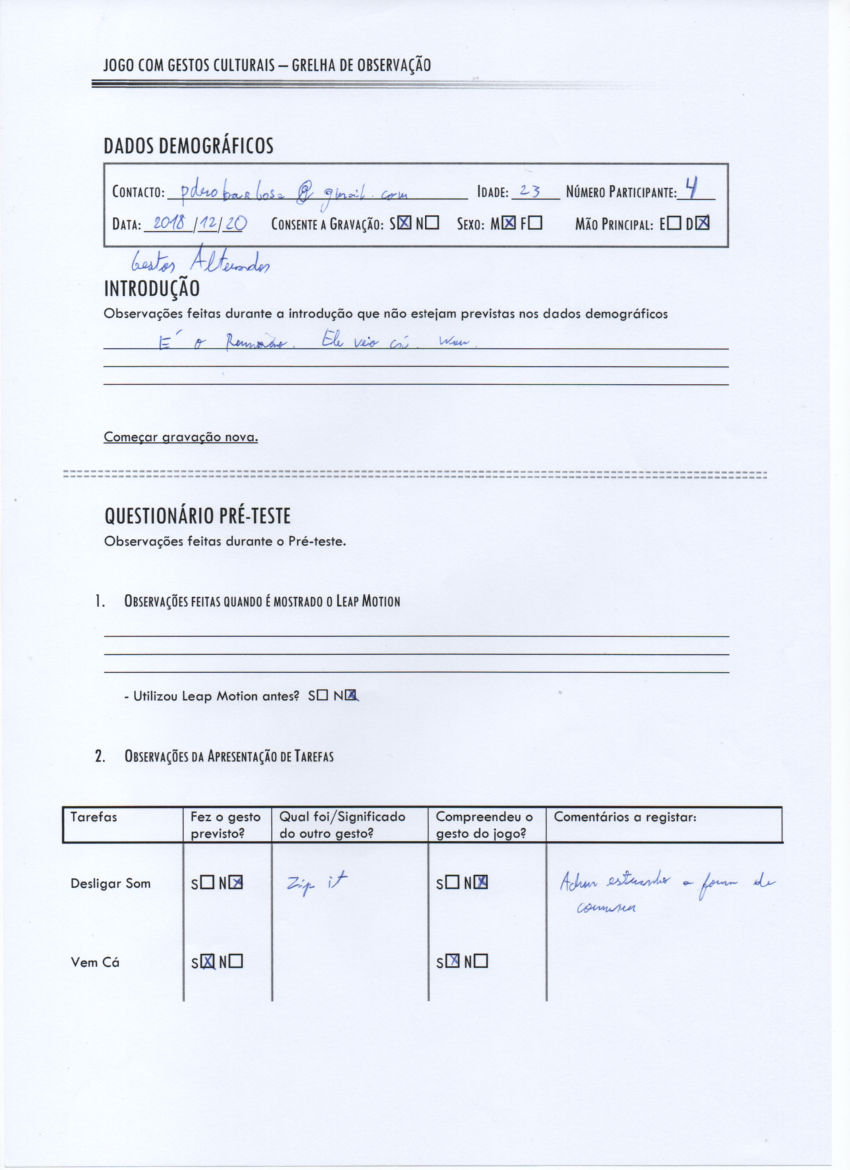 JOGO COM GESTOS CULTURAIS – GRELHA DE OBSERVAÇÃO
DADOS DEMOGRÁFICOS
CONTACTO: pdrobarbosa@gmail.com IDADE: 23 NÚMERO PARTICIPANTE: 4
DATA: 2018/12/20 CONSENTE A GRAVAÇÃO: S☒ N☐ SEXO: M☒ F☐ MÃO PRINCIPAL: E☐ D☒
Gestos Alterados
INTRODUÇÃO
Observações feitas durante a introdução que não estejam previstas nos dados demográficos
É o Ele veio cá. Wow.
Começar gravação nova.
QUESTIONÁRIO PRÉ-TESTE
Observações feitas durante o Pré-teste.
1. OBSERVAÇÕES FEITAS QUANDO É MOSTRADO O LEAP MOTION
- Utilizou Leap Motion antes? S☐ N☒
2. OBSERVAÇÕES DA APRESENTAÇÃO DE TAREFAS
Tarefas Fez o gesto Qual foi/Significado Compreendeu o Comentários a registar:
previsto? do outro gesto? gesto do jogo?
Desligar Som S☐ N☒ Zip it S☐ N☒ Achou estranho a forma de
Vem Cá S☒ N☐ S☒ N☐